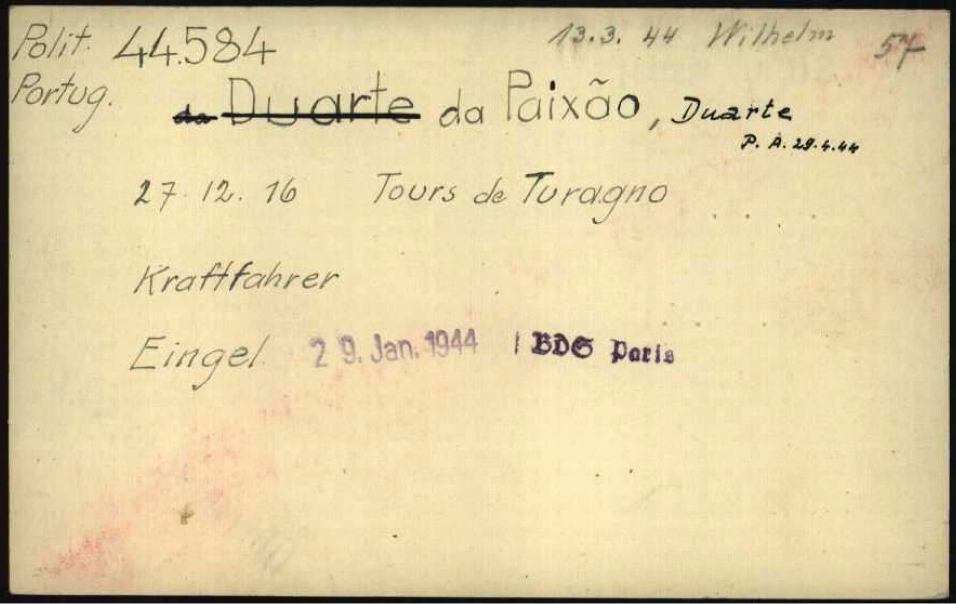 Polit. 44.584 13.3.44 Wilhelm 57
Portug. da Duarte da Paixão, Duarte
P. A. 29.4.44
27.12.16 Tours de Turagno
Kraftfahrer
Eingel. 29. Jan. 1944 BDS Paris